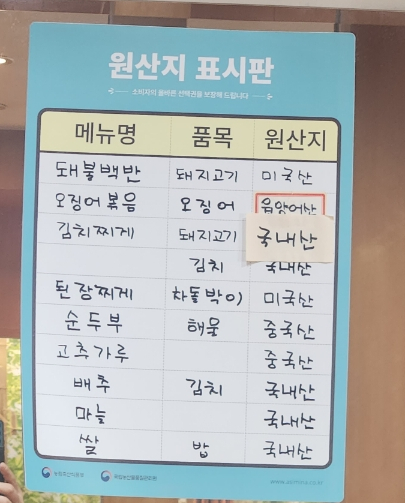 원산지 표시판
소비자의 올바른 선택권을 보장해 드립니다
메뉴명 품목 원산지
돼불백반 돼지고기 미국산
오징어볶음 오징어 원양어산
김치찌개 돼지고기 국내산
김치 국내산
된장찌게 차돌박이 미국산
순두부 해물 중국산
고추가루 중국산
배추 김치 국내산
마늘 국내산
쌀 밥 국내산
농림축산식품부 국립농산물품질관리원